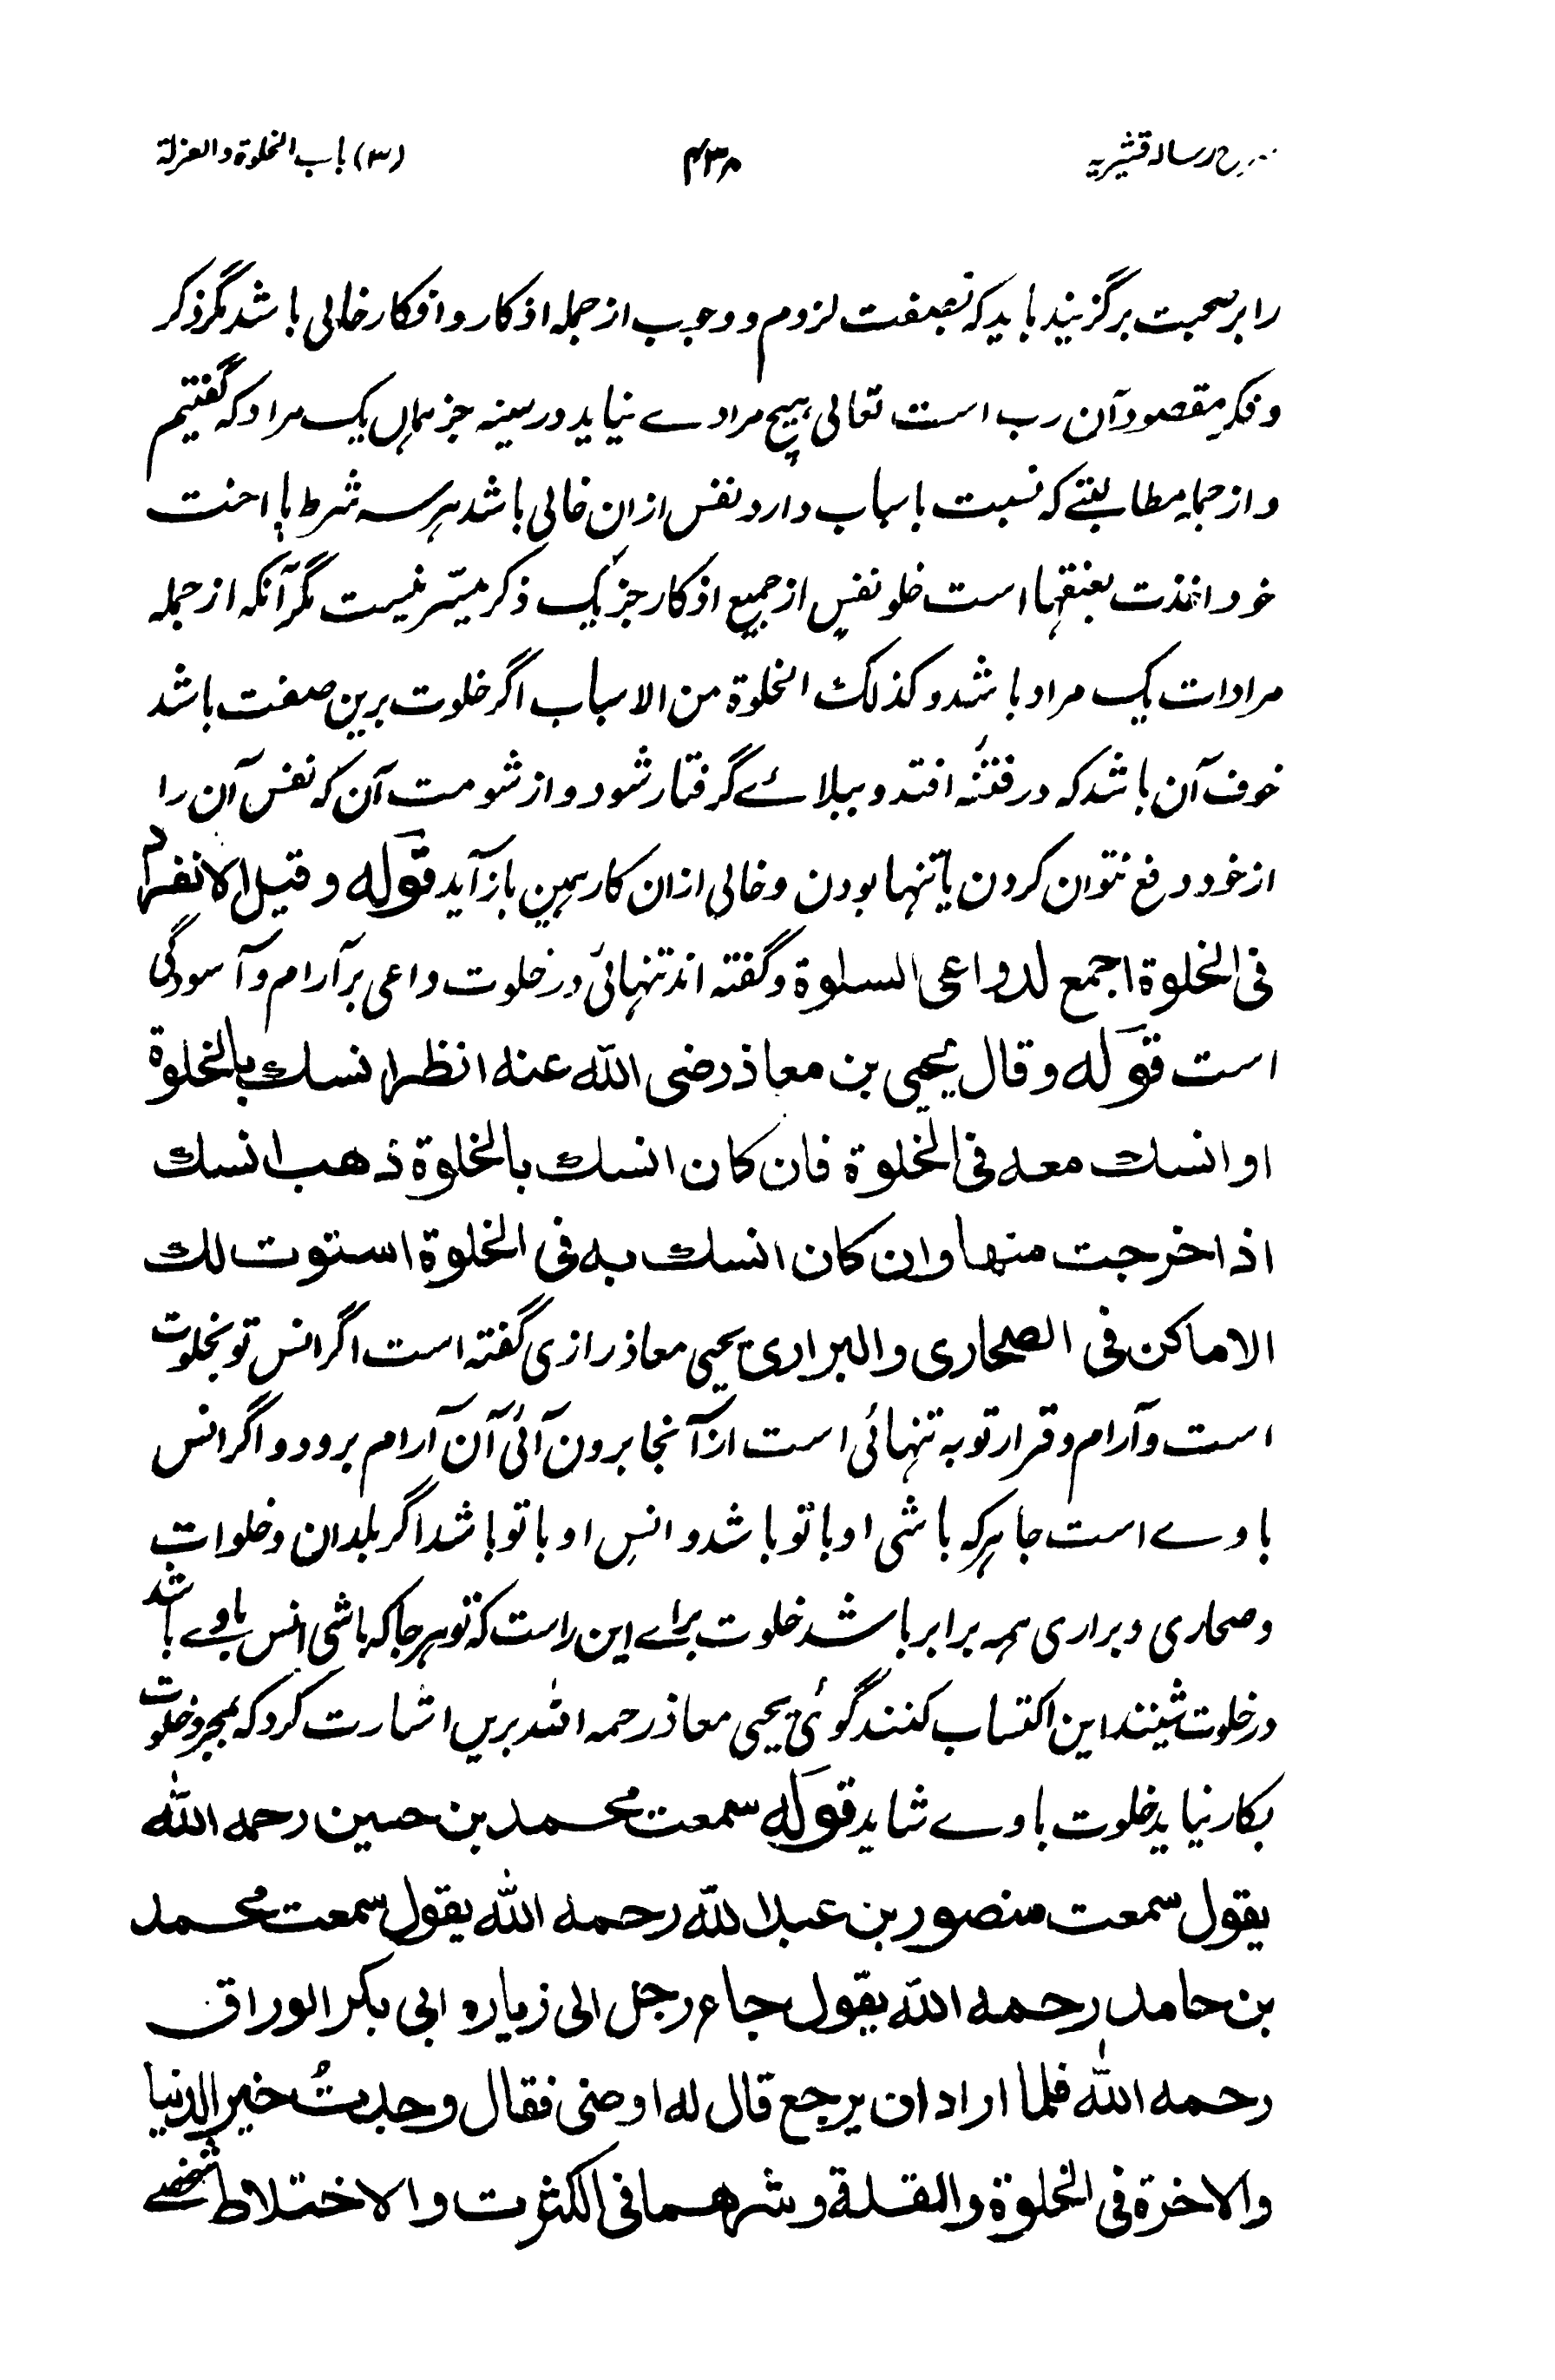 شرح رسالہ قشیریہ ۴۳۸ (۳) باب الخلوة والعزلة
را بر صحبت برگزیند باید کہ بصفت لزوم و وجوب از جملہ اذکار و افکار خالی باشد مگر ذکر
و فکرِ مقصود آن رب است تعالی ہیچ مرادے نیاید در سینہ جز ہماں یک مراد کہ گفتیم
و از جملہ مطالبتے کہ نسبت باسباب دارد نفس ازان خالی باشد ہر سہ شرط با
خود است خلو نفس از جمیع اذکار جز یک ذکر میسّر نیست مگر آنکہ از جملہ
مرادات یک مراد باشد و کذلک الخلوة من الاسباب اگر خلوت برین صفت باشد
خوف آن باشد کہ در فتنہ افتد و ببلائے گرفتار شود و از شومت آن کہ نفس آن را
از خود دفع نتوان کردن یا تنہا بودن و خالی ازان کار ہمین باز آید قولہ و قیل الانفراد
فی الخلوة اجمع لدواعی السلوة و گفتہ اند تنہائی در خلوت داعی بر آرام و آسودگی
است قولہ و قال یحیی بن معاذ رضی اللہ عنہ انظر انسك بالخلوة
او انسك معہ فی الخلوة فان کان انسك بالخلوة ذهب انسك
اذا خرجت منها وان کان انسك بہ فی الخلوة استوت لك
الاماکن فی الصحاری والبراری یحیی معاذ رازی گفتہ است اگر انس تو بخلوت
است و آرام و قرار تو بہ تنہائی است از آنجا برون آئی آن آرام برود و اگر انس
با وے است جا ہر کہ باشی او با تو باشد و انسِ او با تو باشد اگر بلدان و خلوات
و صحاری و براری ہمہ برابر باشد خلوت براے این راست کہ تو ہر جا کہ باشی انس باوے باشد
در خلوت شینند این اکتساب کنند گوئی یحیی معاذ رحمہ اللہ بریں اشارت کرد کہ بمجرد خلوت
بکار نیاید خلوت باوے شاید قولہ سمعت محمد بن حسین رحمہ اللہ
یقول سمعت منصور بن عبد اللہ رحمہ اللہ یقول سمعت محمد
بن حامد رحمہ اللہ یقول جاء رجل الی زیارہ ابی بکر الوراق
رحمہ اللہ فلما اراد ان یرجع قال لہ اوصنی فقال وجدتُ خیر الدنیا
والاخرة فی الخلوة والقلة و شرهما فی الکثرت والاختلاط شخصے